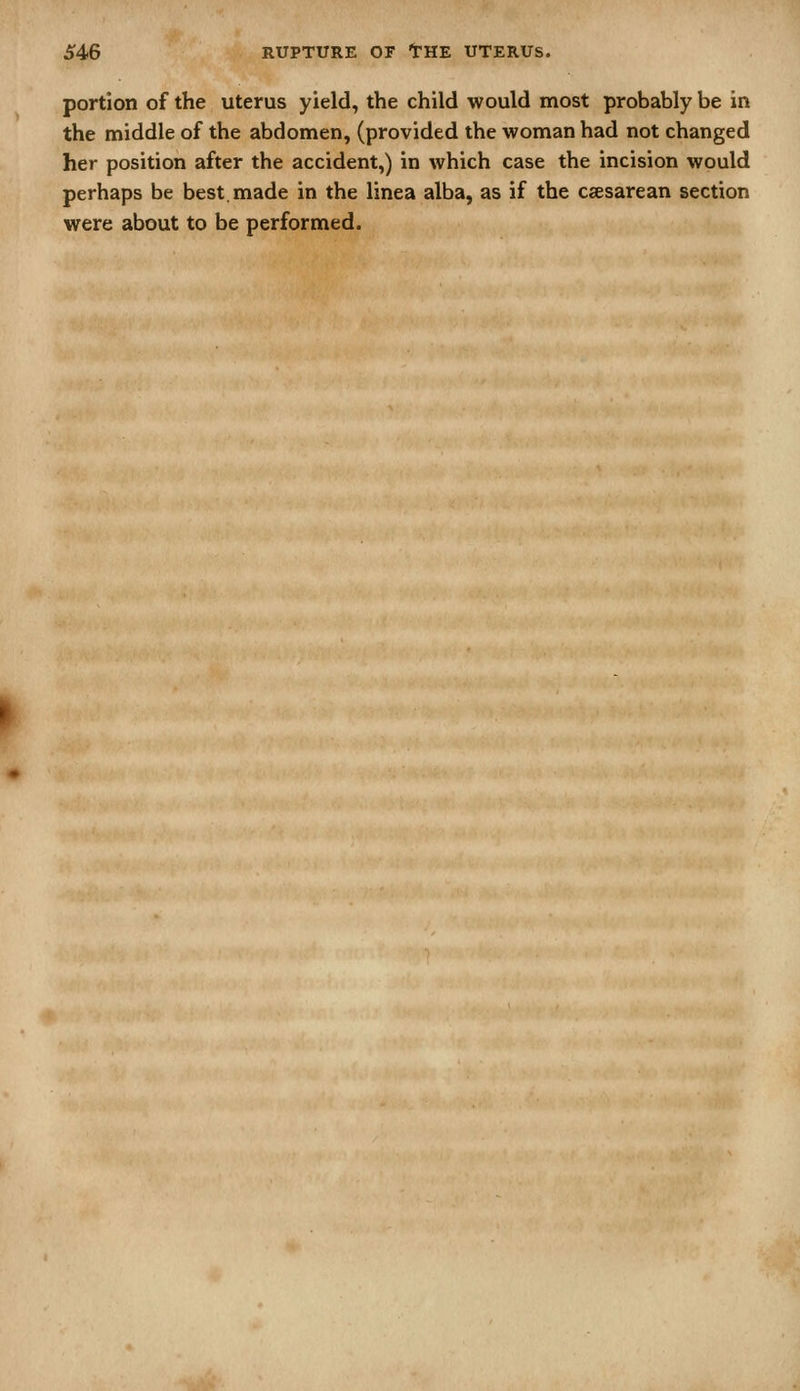 546 RUPTURE OF THE UTERUS.
portion of the uterus yield, the child would most probably be in
the middle of the abdomen, (provided the woman had not changed
her position after the accident,) in which case the incision would
perhaps be best.made in the linea alba, as if the cæsarean section
were about to be performed.